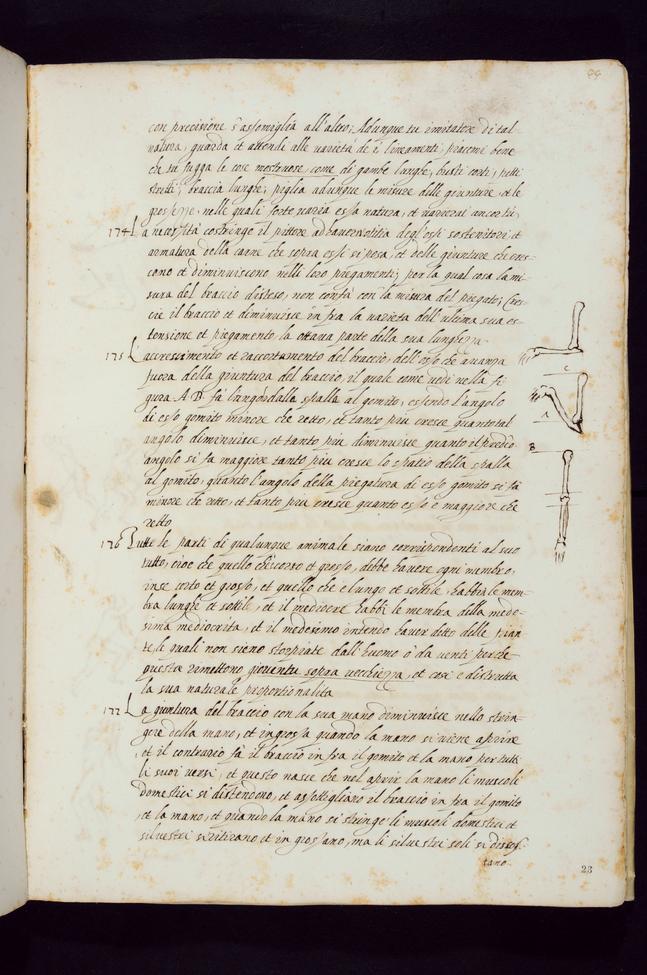 99
con precisione s'assomiglia all'altro; Adunque tu imitatore di tal
natura, guarda et attendi alle varietà de i lineamenti, piacemi bene
che tu fugga le cose mostruose, come di gambe lunghe, busti corti, petti
stretti, braccia lunghe; piglia adunque le misure delle giunture, et le
grossezze, nelle quali forte varia essa natura, et varierai ancor tu,
174 La necessità costringe il pittore ad haver notitia degl'ossi sostenitori, et
armatura della carne che sopra essi si posa, et delle giunture che cres-
cono et diminuiscono nelli loro piegamenti; per la qual cosa la mi-
sura del braccio disteso, non confà con la misura del piegato; Cres-
cie il braccio et diminuisce in fra la varietà dell'ultima sua es-
tensione et piegamento la ottava parte della sua lunghezza.
175 L'accrescimento et raccortamento del braccio, dell'osso che avanza
fuora della giuntura del braccio, il quale come vedi nella fi
gura A B. fa lungo dalla spalla al gomito, essendo l'angolo
di esso gomito minore che retto, et tanto piu cresce quanto tal
angolo diminuisce, et tanto piu diminuisce quanto il predto
angolo si fa maggiore tanto piu cresce lo spatio della spalla
al gomito, quanto l'angolo della piegatura di esso gomito si fà
minore che retto, et tanto piu cresce quanto esso e maggiore che
retto
176 Tutte le parti di qualunque animale siano corrispondenti al suo
tutto, cioe che quello ch'è corto et grosso, debbe havere ogni membro,
in se corto et grosso, et quello che e lungo et sottile, habbi le mem-
bra lunghe et sottile, et il mediocre habbi le membra della mede-
sima mediocrità, et il medesimo intendo haver ditto delle pian
te, le quali non sieno storpiate dall'huomo ò da venti perche
questa remettono gioventu sopra vecchiezza, et cosi e distrutta
la sua naturale proportionalita
177 La giuntura del braccio con la sua mano diminuisce nello strin-
gere della mano, et ingrossa quando la mano si viene aprire
, et il contrario fà il braccio in fra il gomito et la mano per tutti
li suoi versi, et questo nasce che nel aprir la mano li muscoli
domestici si distendono, et assottigliano il braccio in fra il gomito
, et la mano, et quando la mano si stringe li muscoli domestici et
silvestri si ritirano et in grossano, ma li silvestri soli si discos-
tano
C
A
B
23